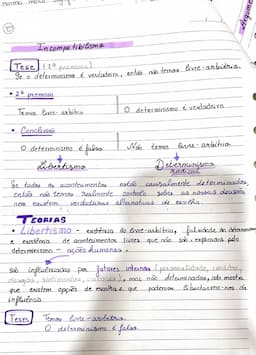 Incompatibilismo
Tese (1ª premissa)
Se o determinismo é verdadeiro, então não temos livre-arbítrio.
• 2ª premissa
Temos livre-arbítrio
O determinismo é verdadeiro
• Conclusão
O determinismo é falso
Não temos livre-arbítrio
Libertismo
Determinismo radical
Se todos os acontecimentos estão causalmente determinados,
então não temos realmente controlo sobre as nossas decisões
nem existem verdadeiras alternativas de escolha.
TEORIAS
• Libertismo - existência do livre-arbítrio, falsidade do determinismo
e existência de acontecimentos livres que não são explicados pelo
determinismo - ações humanas.
são influenciadas por fatores internos (personalidade,
desejos, sentimentos, ), mas não determinadas,
que existem opções de escolha e que podemos libertarmo-nos da
influência
Teses
Temos livre-arbítrio.
O determinismo é falso.